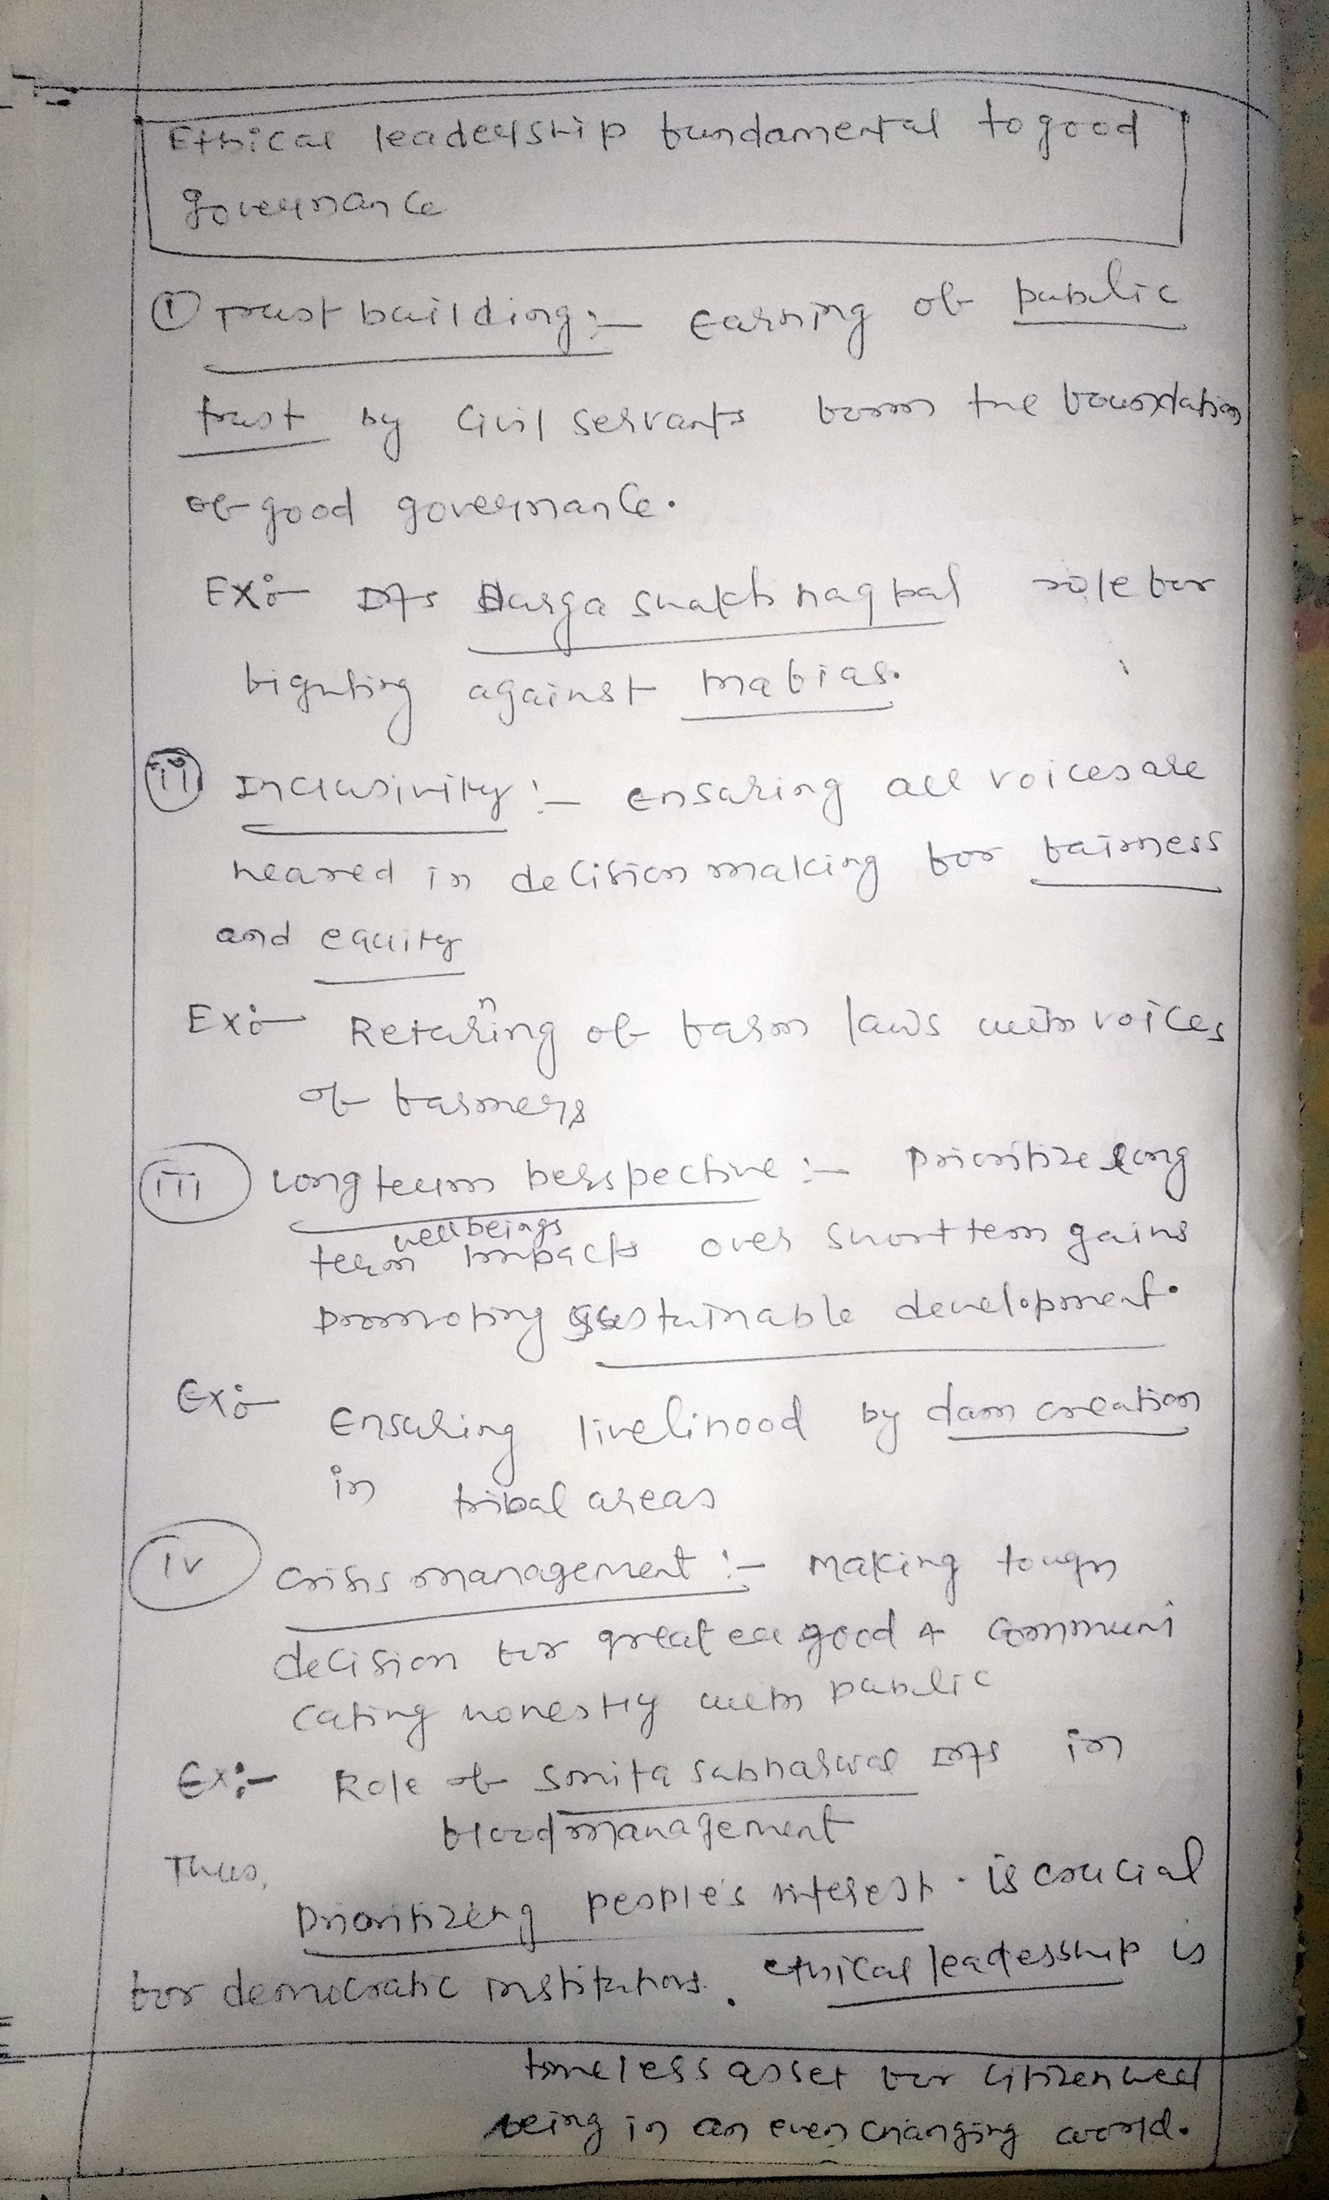 Ethical leadership fundamental to good
governance
① Trust building:- earning of public
trust by civil servants form the foundation
of good governance.
Ex:- IAS Durga shakti nagpal role for
fighting against mafias.
(ii) Inclusivity:- ensuring all voices are
heared in decision making for fairness
and equity
Ex:- of farm laws with voices
of farmers
(iii) Long term perspective:- prioritize long
term wellbeings impacts over short term gains
promoting sustainable development.
Ex:- ensuring livelihood by dam creation
in tribal areas
(iv) crisis management:- making tough
decision for greater good & communi
cating honestly with public
Ex:- Role of Smita sabharwal IAS in
flood management
Thus,
prioritizing people's interest is crucial
for democratic institutions. ethical leadership is
timeless asset for citizen well
being in an ever changing world.